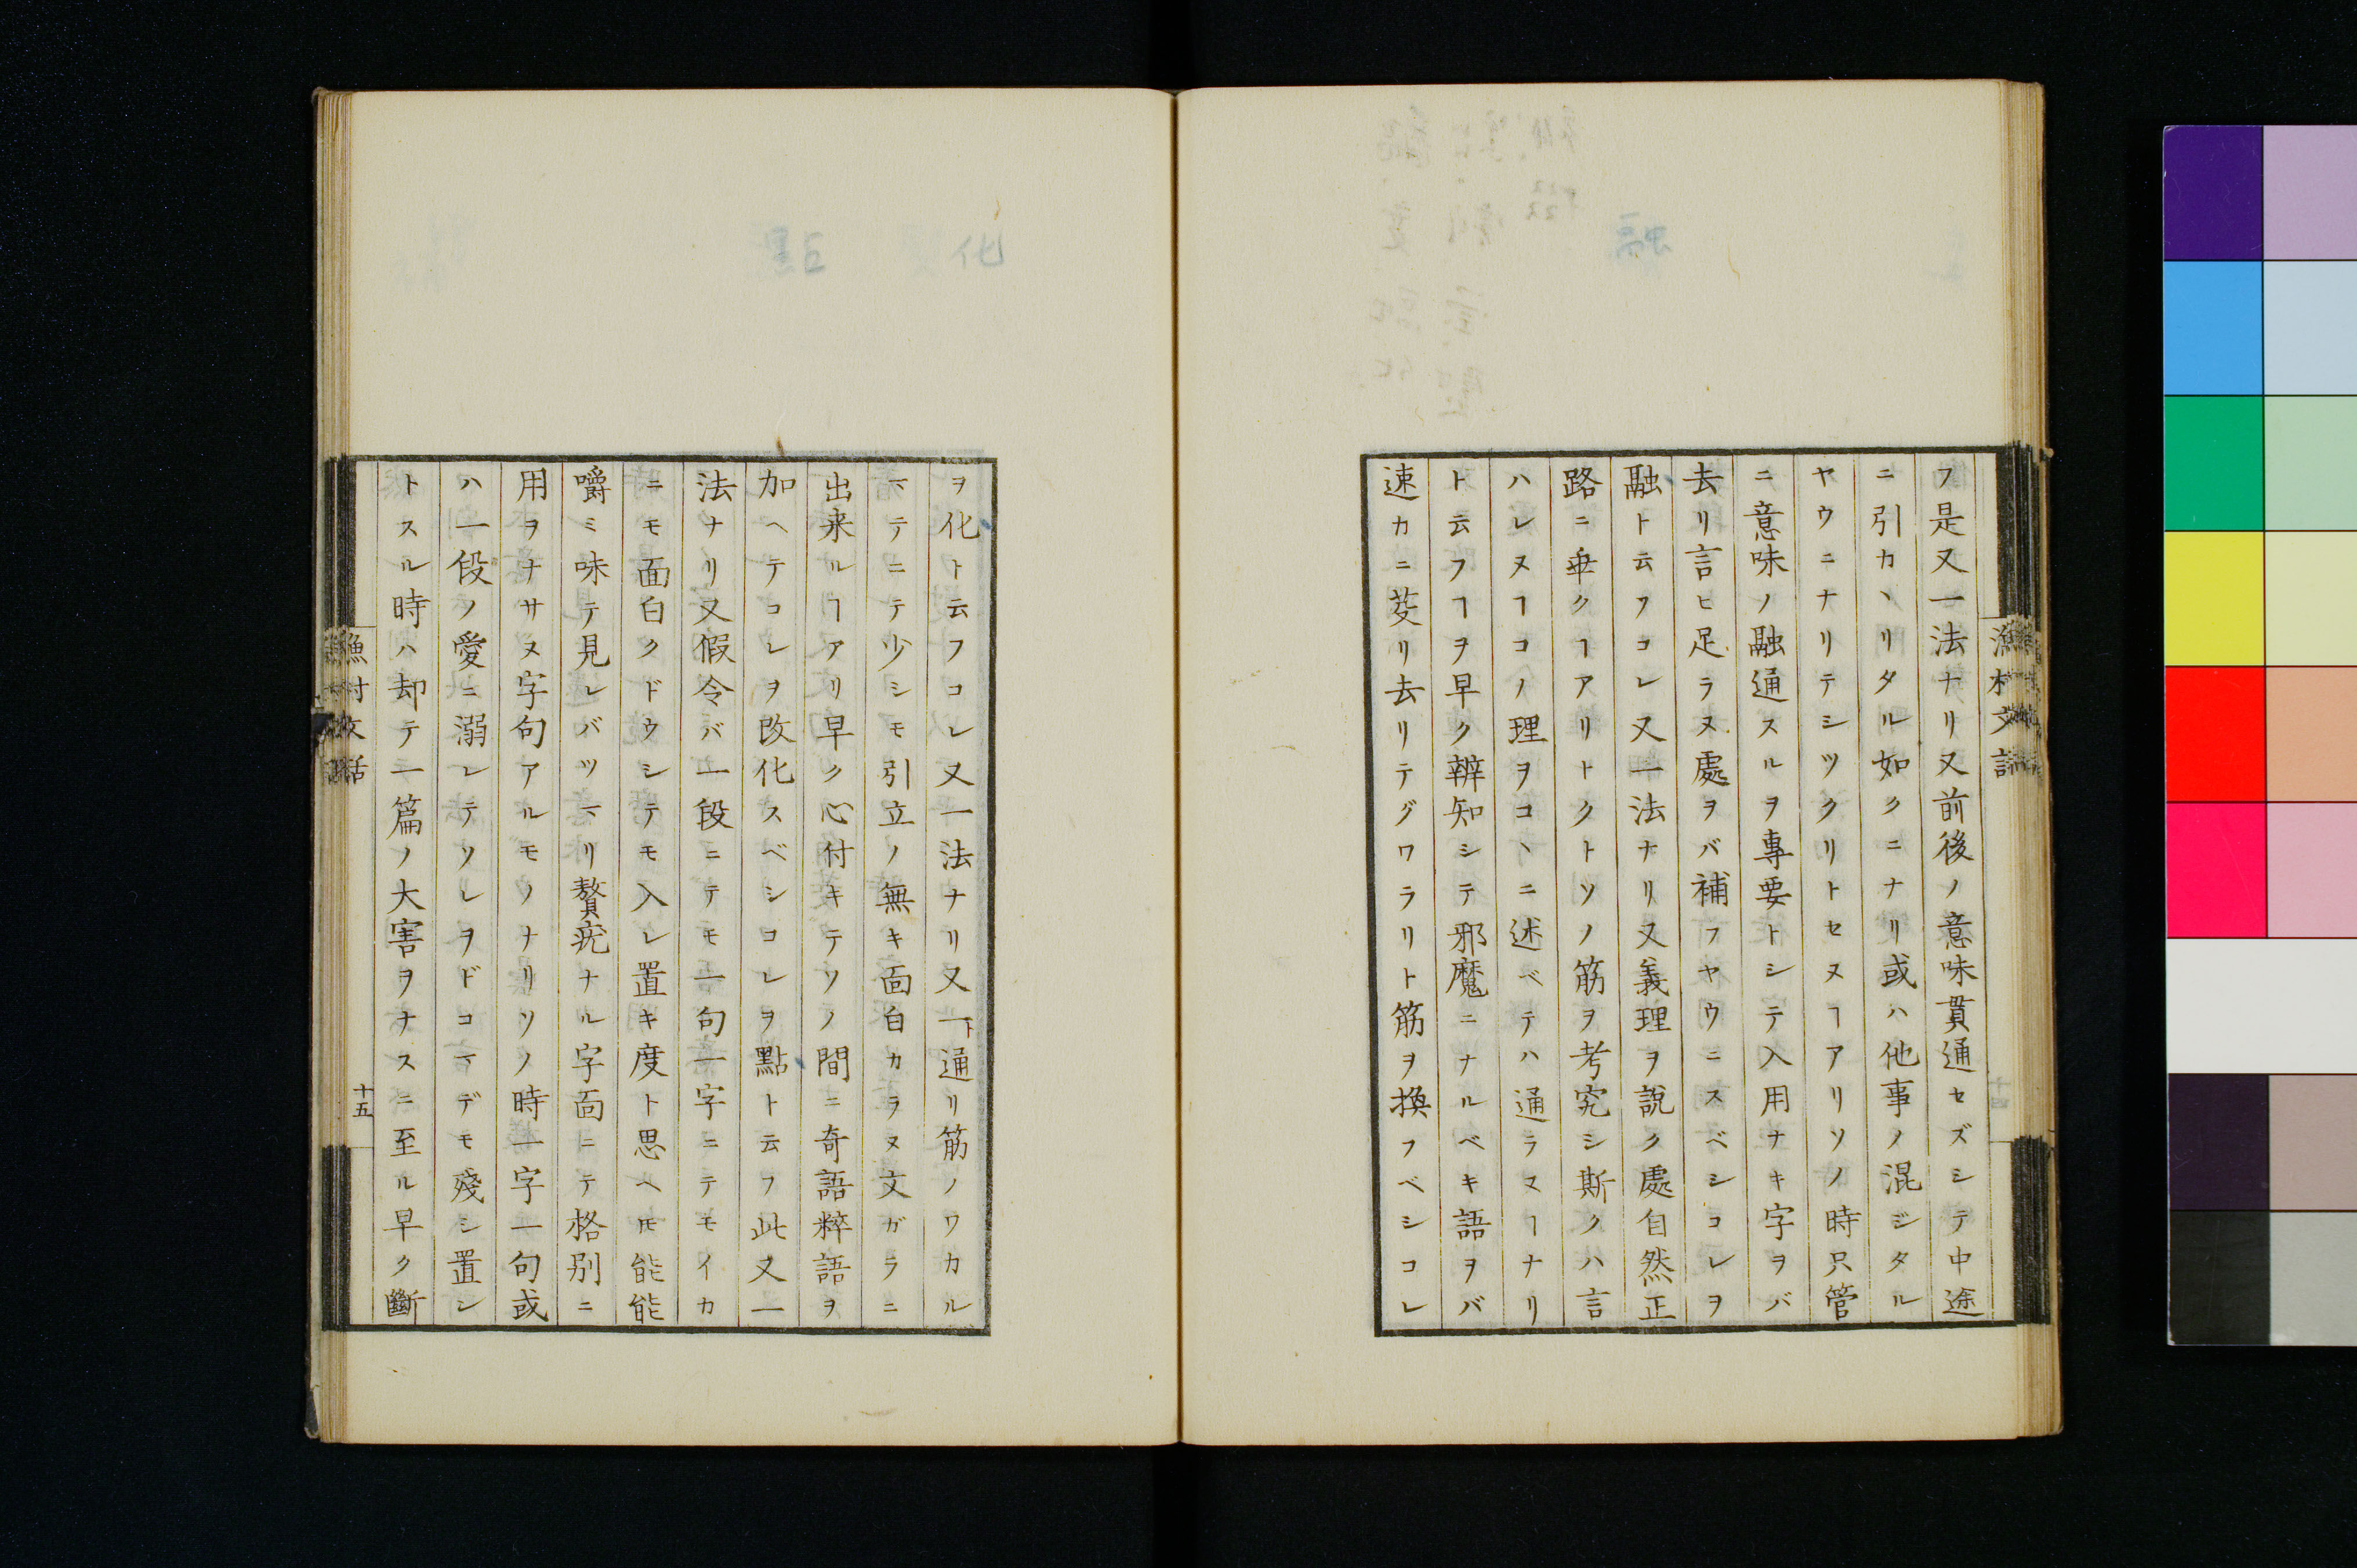 フ是又一法ナリ又前後ノ意味貫通セズシテ中途
ニ引カヽリタル如クニナリ或ハ他事ノ混ジタル
ヤウニナリテシツクリトセヌヿアリソノ時只管
ニ意味ノ融通スルヲ專要トシテ入用ナキ字ヲバ
去リ言ヒ足ラヌ處ヲバ補フヤウニスベシコレヲ
融ト云フコレ又一法ナリ又義理ヲ說ク處自然正
路ニ乖クヿアリトクトソノ筋ヲ考究シ斯クハ言
ハレヌヿコノ理ヲコヽニ述ベテハ通ラヌヿナリ
ト云フヿヲ早ク辨知シテ邪魔ニナルベキ語ヲバ
速カニ芟リ去リテグワラリト筋ヲ換フベシコレ
漁村文話
ヲ化ト云フコレ又一法ナリ又一ト通リ筋ノワカル
マテニテ少シモ引立ノ無キ面白カラヌ文ガラニ
出来ルヿアリ早ク心付キテソノ間ニ奇語粹語ヲ
加ヘテコレヲ改化スベシコレヲ點ト云フ此又一
法ナリ又假令バ一段ニテモ一句一字ニテモイカ
ニモ面白クドウシテモ入レ置キ度ト思ヘ𪜈能能
嚼ミ味テ見レバツマリ贅疣ナル字面ニテ格別ニ
用ヲナサヌ字句アルモノナリソノ時一字一句或
ハ一段ノ愛ニ溺レテソレヲドコマデモ殘シ置ン
トスル時ハ却テ一篇ノ大害ヲナスニ至ル早ク斷
漁村文話
十五